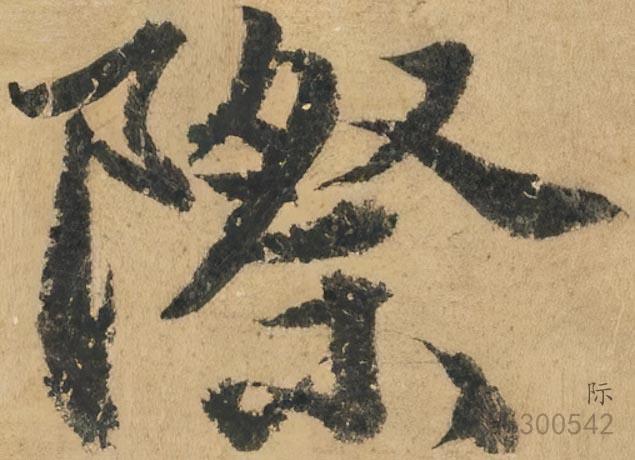 際
际
300542